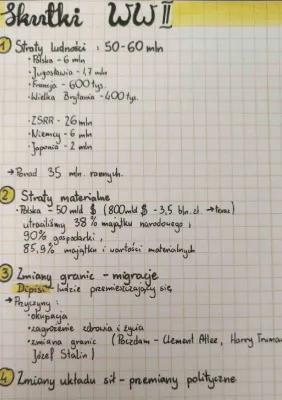 Skutki WW II
1 Straty ludności : 50-60 mln
• Polska - 6 mln
• Jugosławia - 1,7 mln
• Francja - 600 tys.
• Wielka Brytania - 400 tys.
• ZSRR - 26 mln
• Niemcy - 6 mln
• Japonia - 2 mln
→ Ponad 35 mln. rannych.
2 Straty materialne
• Polska - 50 mld $ (800 mld $ - 3,5 bln. zł. → teraz)
utraciliśmy 38% majątku narodowego i
90% gospodarki,
85,9% majątku i wartości materialnych
3 Zmiany granic - migracje
Dipisi - ludzie przemieszczający się
→ Przyczyny :
• okupacja
• zagrożenie zdrowia i życia
• zmiana granic (Poczdam - Clement Atlee, Harry Truman
Józef Stalin)
4 Zmiany układu sił - przemiany polityczne